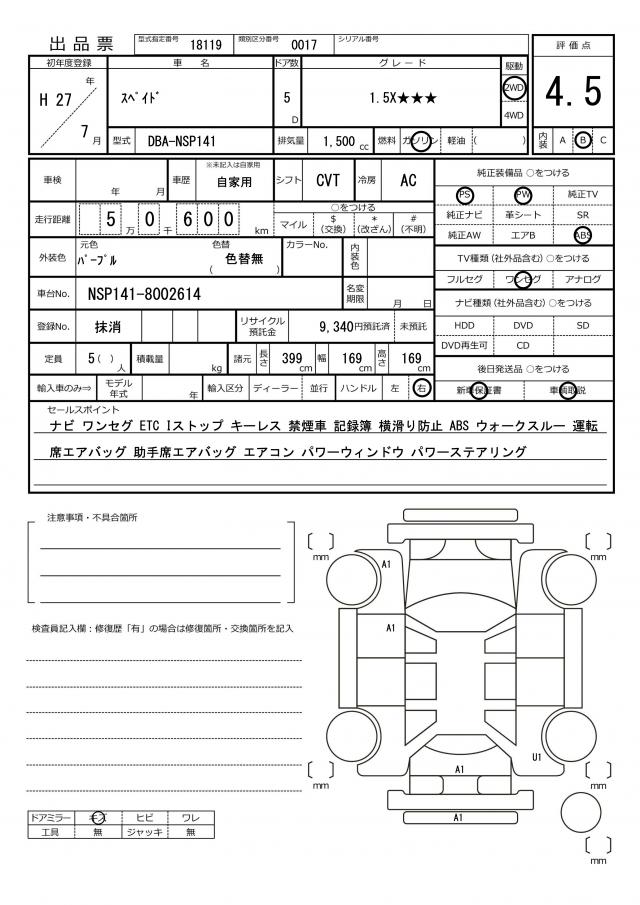 出品票 型式指定番号 18119 類別区分番号 0017 シリアル番号
初年度登録 車名 ドア数 グレード 駆動 評価点
H 27 年 7 月 ｽﾍﾟｲﾄﾞ 5 D 1.5X★★★ 2WD 4WD 4.5
型式 DBA-NSP141 排気量 1,500 cc 燃料 ガソリン 軽油 ( ) 内装 A B C
車検 年 月 車歴 ※未記入は自家用 自家用 シフト CVT 冷房 AC
走行距離 5 万 0 千 6 0 0 km ○をつける
マイル $ (交換) * (改ざん) # (不明)
外装色 元色 ﾊﾟｰﾌﾟﾙ 色替 色替無 ( ) カラーNo. 内装色
車台No. NSP141-8002614 名変期限 月 日
登録No. 抹消 リサイクル預託金 9,340円預託済 未預託
定員 5 ( ) 人 積載量 kg 諸元 長さ 399 cm 幅 169 cm 高さ 169 cm
輸入車のみ⇒ モデル年式 年 輸入区分 ディーラー 並行 ハンドル 左 右
純正装備品 ○をつける
PS PW 純正TV
純正ナビ 革シート SR
純正AW エアB ABS
TV種類 (社外品含む) ○をつける
フルセグ ワンセグ アナログ
ナビ種類 (社外品含む) ○をつける
HDD DVD SD
DVD再生可 CD
後日発送品 ○をつける
新車保証書 車輌取説
セールスポイント
ナビ ワンセグ ETC Iストップ キーレス 禁煙車 記録簿 横滑り防止 ABS ウォークスルー 運転
席エアバッグ 助手席エアバッグ エアコン パワーウィンドウ パワーステアリング
注意事項・不具合箇所
検査員記入欄：修復歴「有」の場合は修復箇所・交換箇所を記入
ドアミラー キズ ヒビ ワレ
工具 無 ジャッキ 無
mm
mm
A1
A1
A1
U1
A1
mm
mm
mm